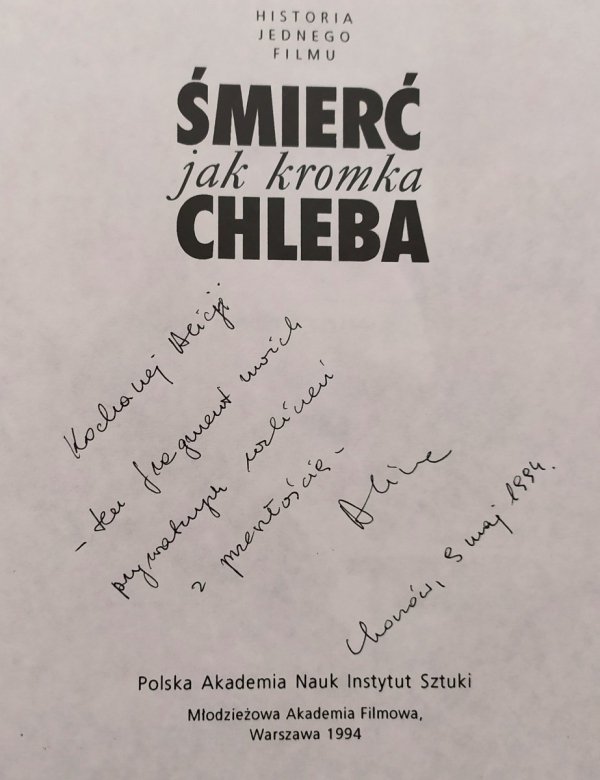 HISTORIA
JEDNEGO
FILMU
ŚMIERĆ
jak kromka
CHLEBA
Kochanej Alicji
- ten fragment moich
prywatnych rozliczeń
z przeszłością -
Alina
Chorzów, 9 maj 1994.
Polska Akademia Nauk Instytut Sztuki
Młodzieżowa Akademia Filmowa,
Warszawa 1994